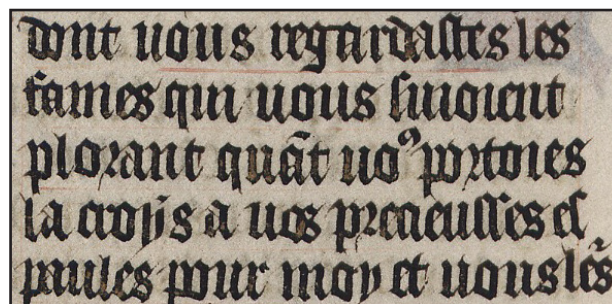 dont uous regardastes les
fames qui uous siuoient
plorant quāt uoꝰ portoies
la croÿs a ues precieusses es
paules pour moy et uous les